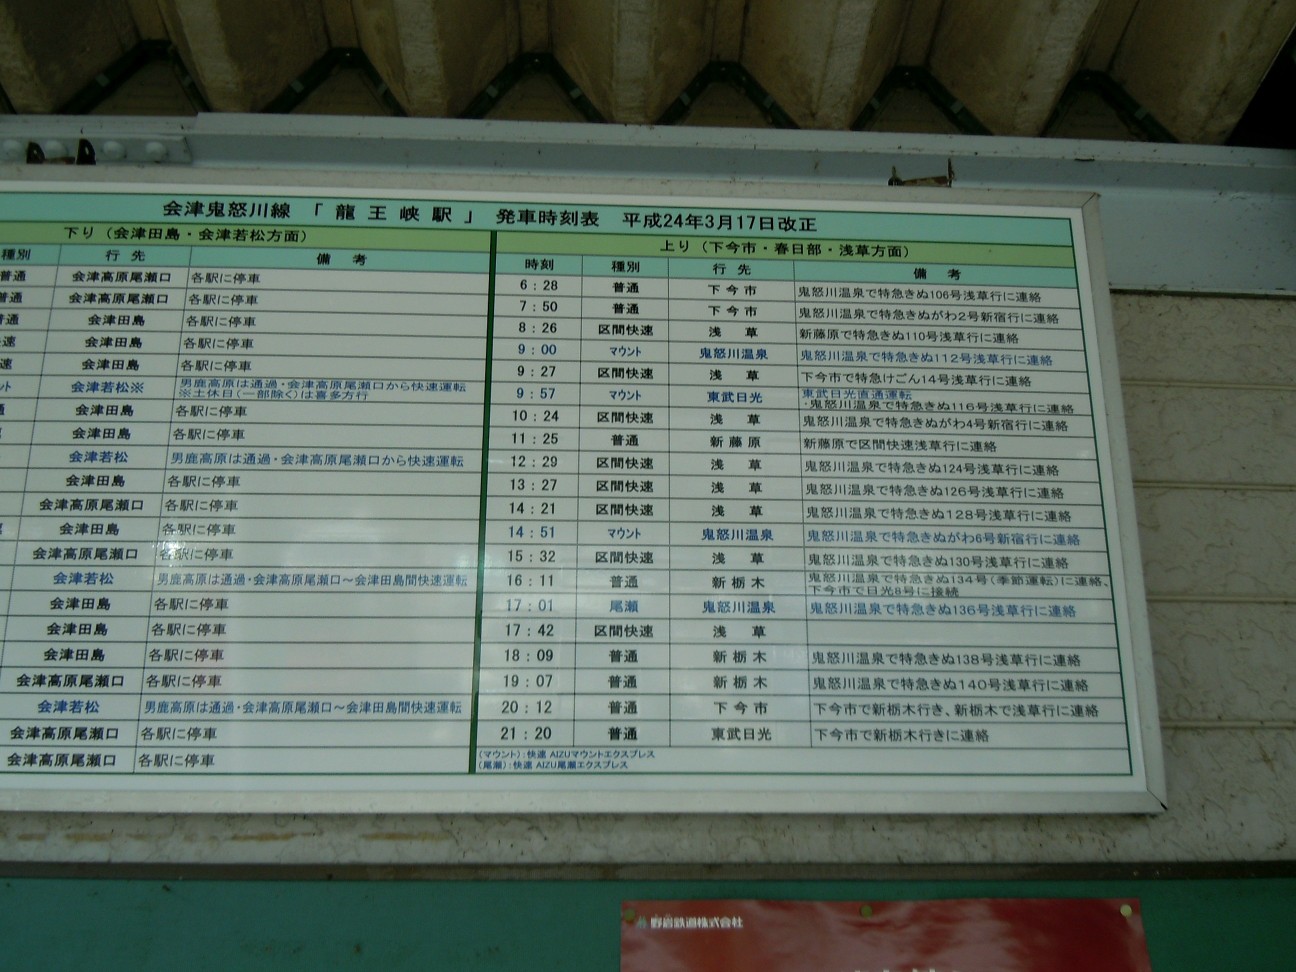 会津鬼怒川線 「龍王峡駅」 発車時刻表 平成24年3月17日改正
下り（会津田島・会津若松方面）
種別 行先 備考
普通 会津高原尾瀬口 各駅に停車
普通 会津高原尾瀬口 各駅に停車
普通 会津田島 各駅に停車
会津田島 各駅に停車
会津田島 各駅に停車
会津若松※ 男鹿高原は通過・会津高原尾瀬口から快速運転
※土休日（一部除く）は喜多方行
会津田島 各駅に停車
会津田島 各駅に停車
会津若松 男鹿高原は通過・会津高原尾瀬口から快速運転
会津田島 各駅に停車
会津高原尾瀬口 各駅に停車
会津田島 各駅に停車
会津高原尾瀬口 各駅に停車
会津若松 男鹿高原は通過・会津高原尾瀬口～会津田島間快速運転
会津田島 各駅に停車
会津田島 各駅に停車
会津田島 各駅に停車
会津高原尾瀬口 各駅に停車
会津若松 男鹿高原は通過・会津高原尾瀬口～会津田島間快速運転
会津高原尾瀬口 各駅に停車
会津高原尾瀬口 各駅に停車
上り（下今市・春日部・浅草方面）
時刻 種別 行先 備考
6：28 普通 下今市 鬼怒川温泉で特急きぬ106号浅草行に連絡
7：50 普通 下今市 鬼怒川温泉で特急きぬがわ2号新宿行に連絡
8：26 区間快速 浅草 新藤原で特急きぬ110号浅草行に連絡
9：00 マウント 鬼怒川温泉 鬼怒川温泉で特急きぬ112号浅草行に連絡
9：27 区間快速 浅草 下今市で特急けごん14号浅草行に連絡
9：57 マウント 東武日光 東武日光直通運転
・鬼怒川温泉で特急きぬ116号浅草行に連絡
10：24 区間快速 浅草 鬼怒川温泉で特急きぬがわ4号新宿行に連絡
11：25 普通 新藤原 新藤原で区間快速浅草行に連絡
12：29 区間快速 浅草 鬼怒川温泉で特急きぬ124号浅草行に連絡
13：27 区間快速 浅草 鬼怒川温泉で特急きぬ126号浅草行に連絡
14：21 区間快速 浅草 鬼怒川温泉で特急きぬ128号浅草行に連絡
14：51 マウント 鬼怒川温泉 鬼怒川温泉で特急きぬがわ6号新宿行に連絡
15：32 区間快速 浅草 鬼怒川温泉で特急きぬ130号浅草行に連絡
16：11 普通 新栃木 鬼怒川温泉で特急きぬ134号（季節運転）に連絡、
下今市で日光8号に接続
17：01 尾瀬 鬼怒川温泉 鬼怒川温泉で特急きぬ136号浅草行に連絡
17：42 区間快速 浅草
18：09 普通 新栃木 鬼怒川温泉で特急きぬ138号浅草行に連絡
19：07 普通 新栃木 鬼怒川温泉で特急きぬ140号浅草行に連絡
20：12 普通 下今市 下今市で新栃木行き、新栃木で浅草行に連絡
21：20 普通 東武日光 下今市で新栃木行きに連絡
（マウント）：快速 AIZUマウントエクスプレス
（尾瀬）：快速 AIZU尾瀬エクスプレス
野岩鉄道株式会社